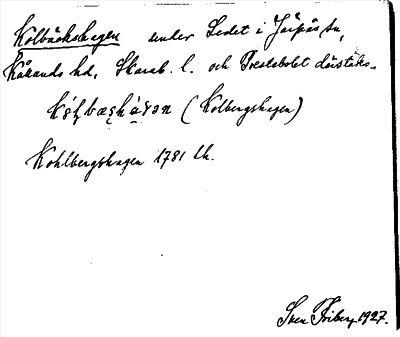 Kolbäckshagen under Ledet i Järpås sn,
Kåkands hd, Skarab. l. och Prestebolet därstäds.
(Kolbergshagen)
Kohlbergshagen 1781 lh.
Sven Friberg 1927.